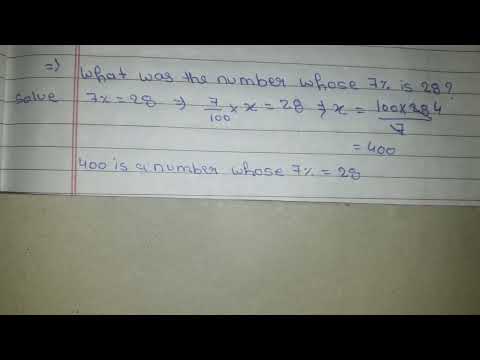 => What was the number whose 7% is 28?
solve 7% = 28 => 7/100 × x = 28 => x = 100×28 4/7
= 400
400 is a number whose 7% = 28